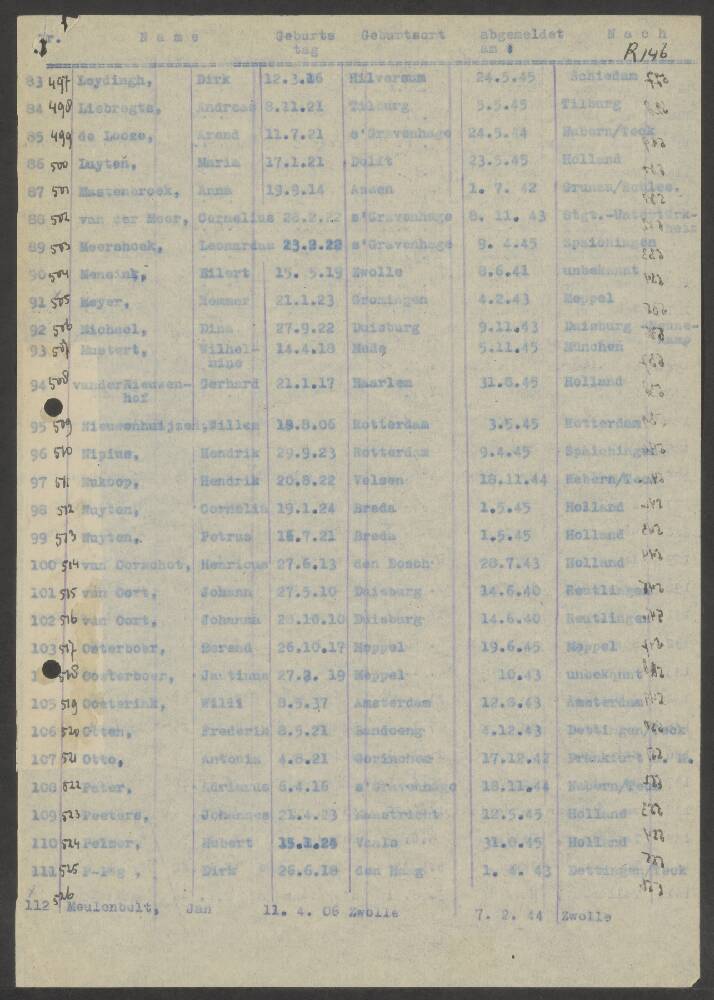 Nr. Name Geburts Geburtsort abgemeldet Nach
tag am R146
83 497 Leydingh, Dirk 12.3.16 Hilversum 24.5.45 Schiedam
84 498 Liebregts, Andreas 8.11.21 Tilburg 5.5.45 Tilburg
85 499 de Looze, Arend 11.7.21 s'Gravenhage 24.5.44 Nabern/Teck
86 500 Luyten, Maria 17.1.21 Delft 23.5.45 Holland
87 501 Mastenbroek, Anna 19.9.14 Assen 1. 7. 42
88 502 van der Meer, Cornelius s'Gravenhage 8. 11. 43
89 503 Meershoek, Leonardus 23.2.22 s'Gravenhage 9. 4.45 Spaichingen
90 504 Mensink, Eilert 15. 5.19 Zwolle 8.6.41 unbekannt
91 505 Meyer, 21.1.23 Groningen 4.2.43 Meppel
92 506 Michael, Dina 27.9.22 Duisburg 9.11.43 Duisburg
93 507 Mustert, Wilhel- 14.4.18 5.11.45 München
mine
94 508 van der Nieuwen- Gerhard 21.1.17 Haarlem 31.8.45 Holland
hof
95 509 Nieuwenhuijzen, Willem 18.8.06 Rotterdam 3.5.45 Rotterdam
96 510 Nipius, Hendrik 29.9.23 Rotterdam 9.4.45 Spaichingen
97 511 Nukoop, Hendrik 20.8.22 Velsen 18.11.44 Nabern/Teck
98 512 Nuyten, Cornelia 19.1.24 Breda 1.5.45 Holland
99 513 Nuyten, Petrus 16.7.21 Breda 1.5.45 Holland
100 514 van Oorschot, Henricus 27.6.13 den Bosch 28.7.43 Holland
101 515 van Oort, Johann 27.5.10 Duisburg 14.6.40 Reutlingen
102 516 van Oort, Johanna Duisburg 14.6.40 Reutlingen
103 517 Oosterboer, Berend 26.10.17 Meppel 19.6.45 Meppel
518 Oosterboer, Jantinus 27.2. 19 Meppel 10.43 unbekannt
105 519 Oosterink, Willi 8.5.37 Amsterdam 12.8.43 Amsterdam
106 520 Otten, Frederik 8.5.21 Bandoeng 4.12.43 Dettingen/Teck
107 521 Otto, Antonia 4.8.21 Gorinchem 17.12.42 Frankfurt a. M.
108 522 Pater, Adrianus 6.4.16 s'Gravenhage 18.11.44 Nabern/Teck
109 523 Peeters, Johannes 21.4.23 Maastricht 12.5.45 Holland
110 524 Pelzer, Hubert Vaals 31.8.45 Holland
111 525 Dirk 26.6.18 den Haag 1. 4. 43 Dettingen/Teck
112 526 Meulenbult, Jan 11. 4. 06 Zwolle 7. 2. 44 Zwolle